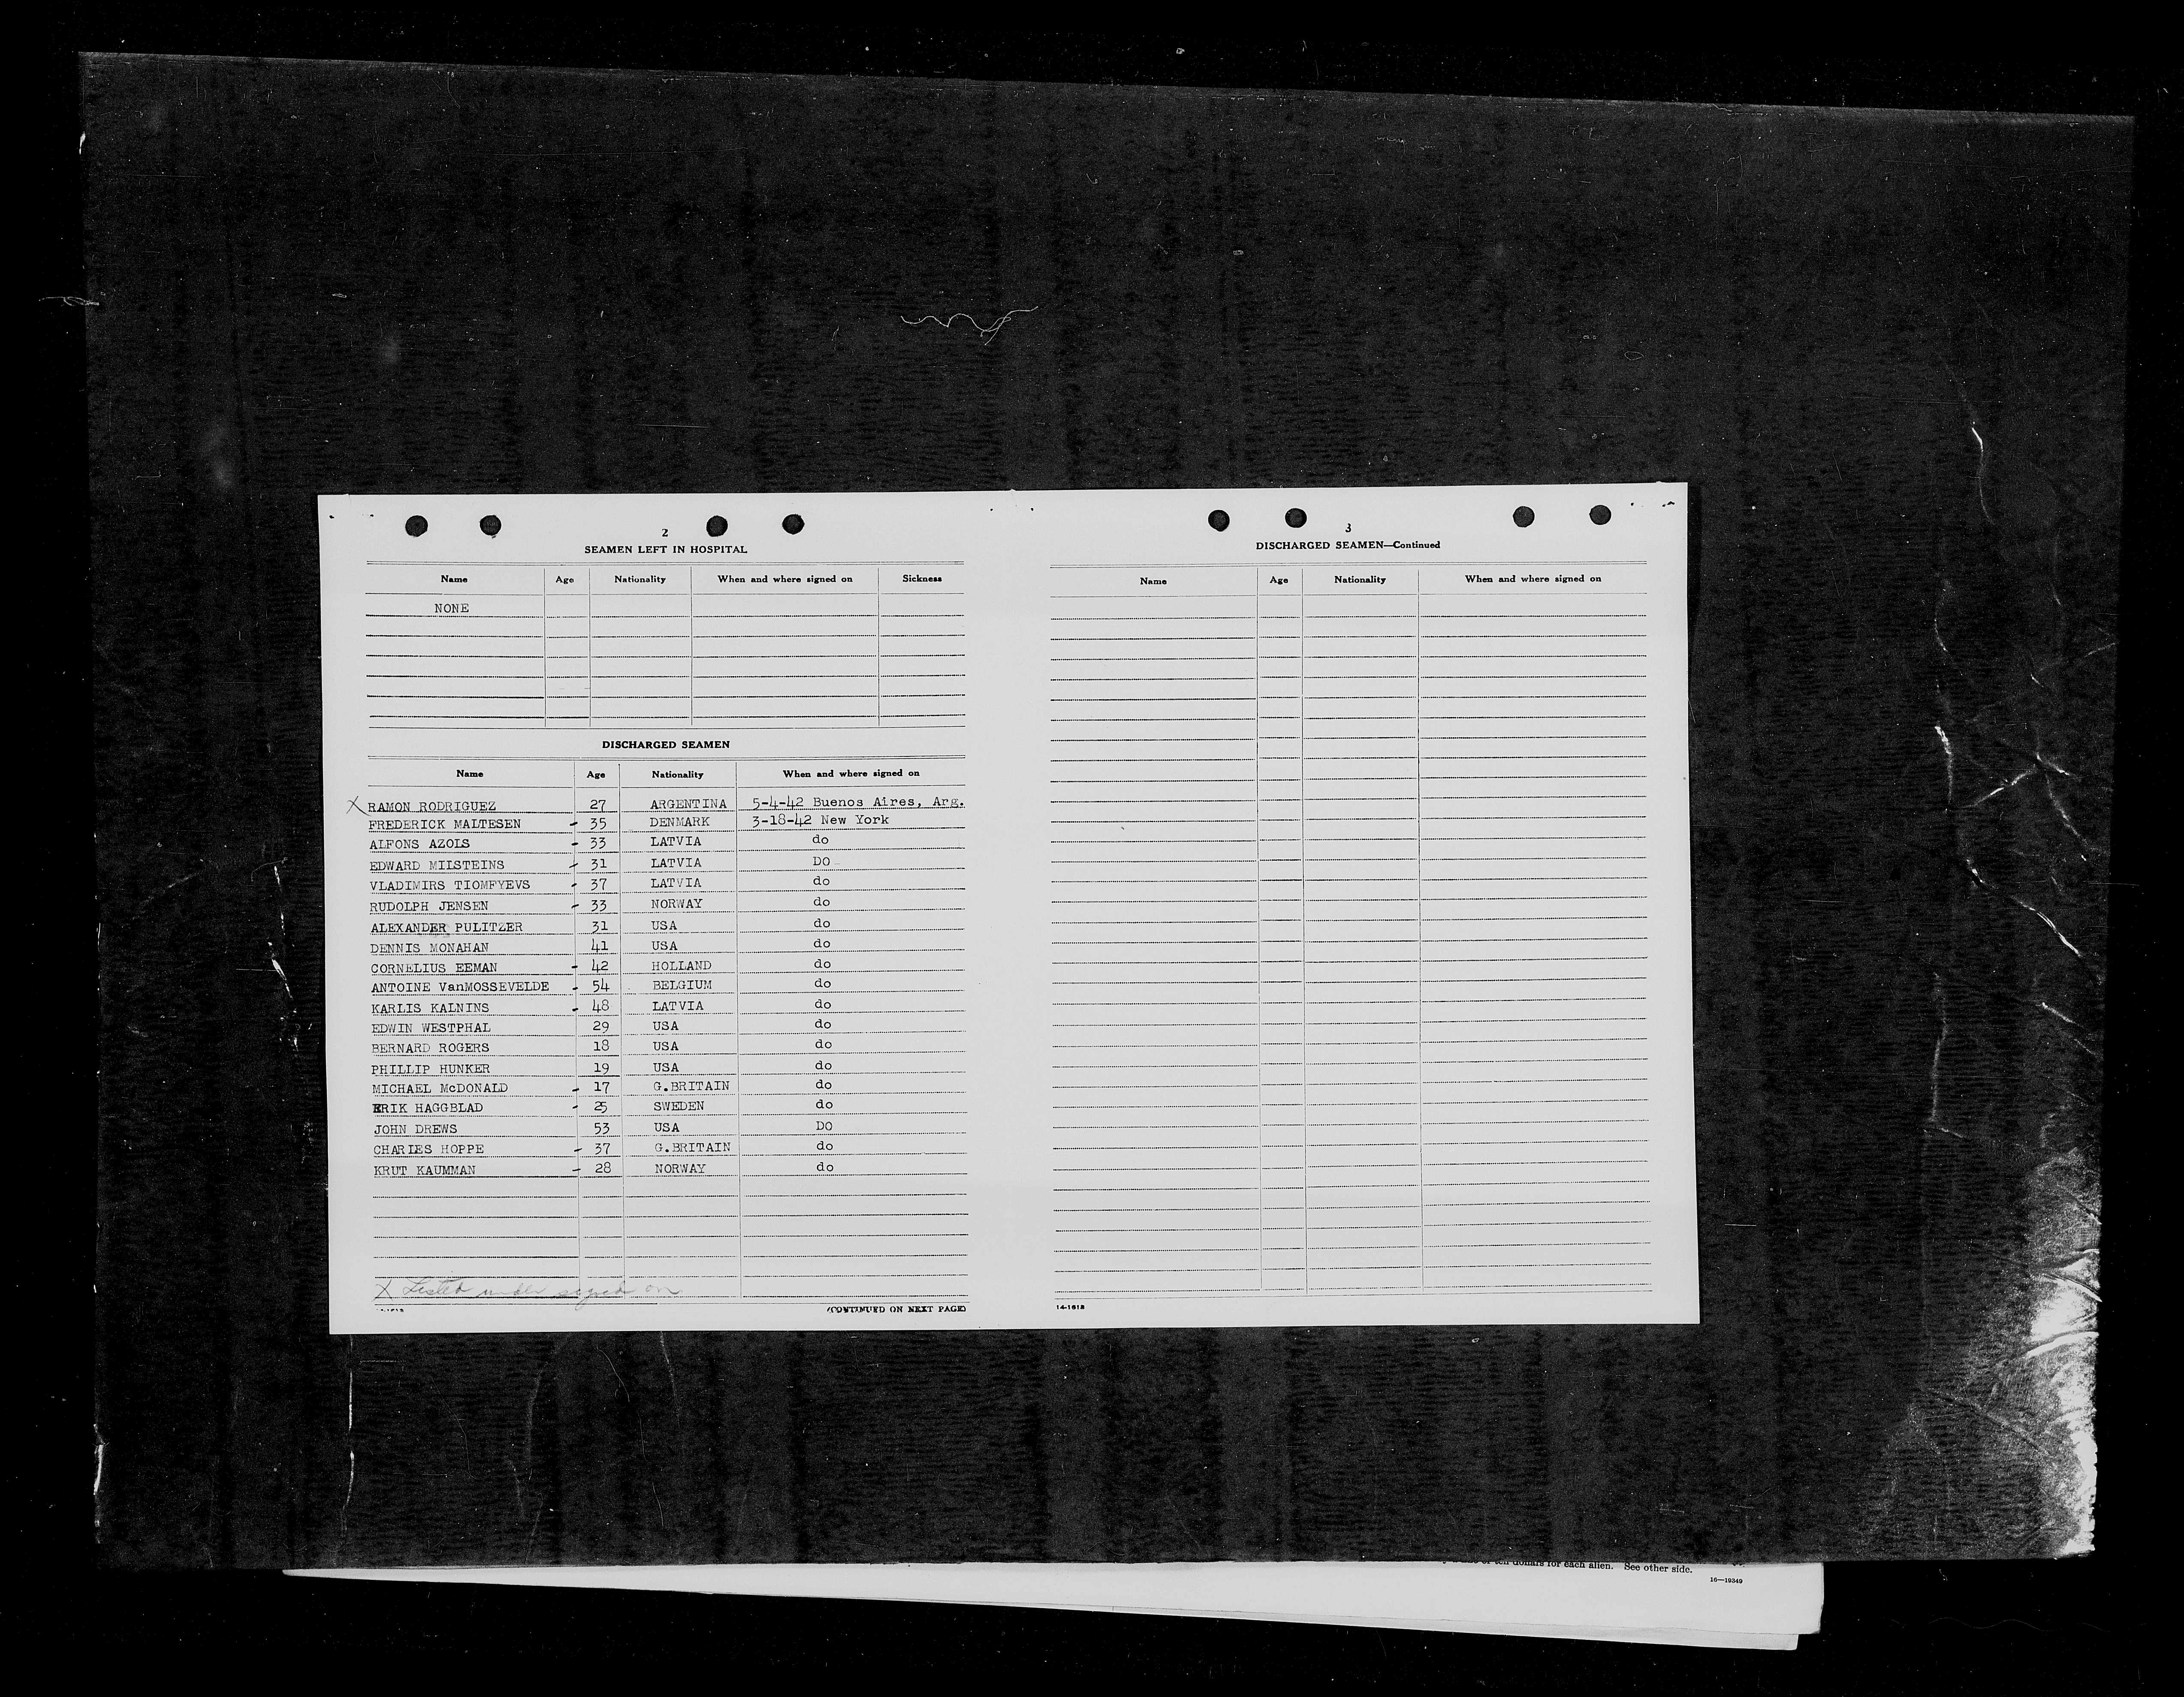 2
SEAMEN LEFT IN HOSPITAL
Name Age Nationality When and where signed on Sickness
NONE
DISCHARGED SEAMEN
Name Age Nationality When and where signed on
X RAMON RODRIGUEZ 27 ARGENTINA 5-4-42 Buenos Aires, Arg.
FREDERICK MALTESEN - 35 DENMARK 3-18-42 New York
ALFONS AZOLS - 33 LATVIA do
EDWARD MILSTEINS - 31 LATVIA DO
VLADIMIRS TIOMFYEVS - 37 LATVIA do
RUDOLPH JENSEN - 33 NORWAY do
ALEXANDER PULITZER 31 USA do
DENNIS MONAHAN 41 USA do
CORNELIUS EEMAN - 42 HOLLAND do
ANTOINE VanMOSSEVELDE - 54 BELGIUM do
KARLIS KALNINS - 48 LATVIA do
EDWIN WESTPHAL 29 USA do
BERNARD ROGERS 18 USA do
PHILLIP HUNKER 19 USA do
MICHAEL McDONALD - 17 G.BRITAIN do
ERIK HAGGBLAD - 25 SWEDEN do
JOHN DREWS 53 USA DO
CHARLES HOPPE - 37 G.BRITAIN do
KRUT KAUMMAN - 28 NORWAY do
X Listed under signed on
(CONTINUED ON NEXT PAGE)
3
DISCHARGED SEAMEN—Continued
Name Age Nationality When and where signed on
14-1618
of ten dollars for each alien. See other side.
16—19349